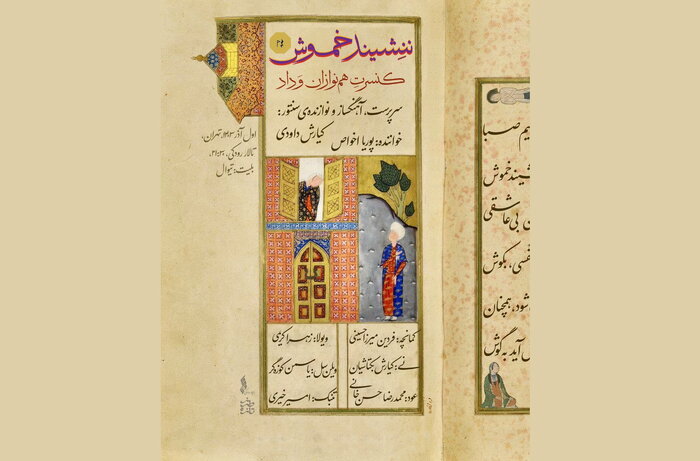 ننشیند خموش
کنسرتِ هم‌نوازان وَداد
سرپرست، آهنگساز و نوازنده‌ی سنتور:
کیارش داودی
خواننده: پوریا اخواص
اول آذر ۱۴۰۳، تهران،
تالار رودکی، ۲۱:۳۰
بلیت: تیوال
کمانچه: فردین میرزاحسینی
نی: کیارش بختاشیان
عود: محمدرضا حسن خانی
ویولا: زهرا اکبری
ویلن سل: یاسمن کوزه‌گر
تنبک: امیر خیری
یم صبا
شیند خموش
ن بی‌عاشقی
نفسی، بکوش
شود، همچنان
آید به گوش